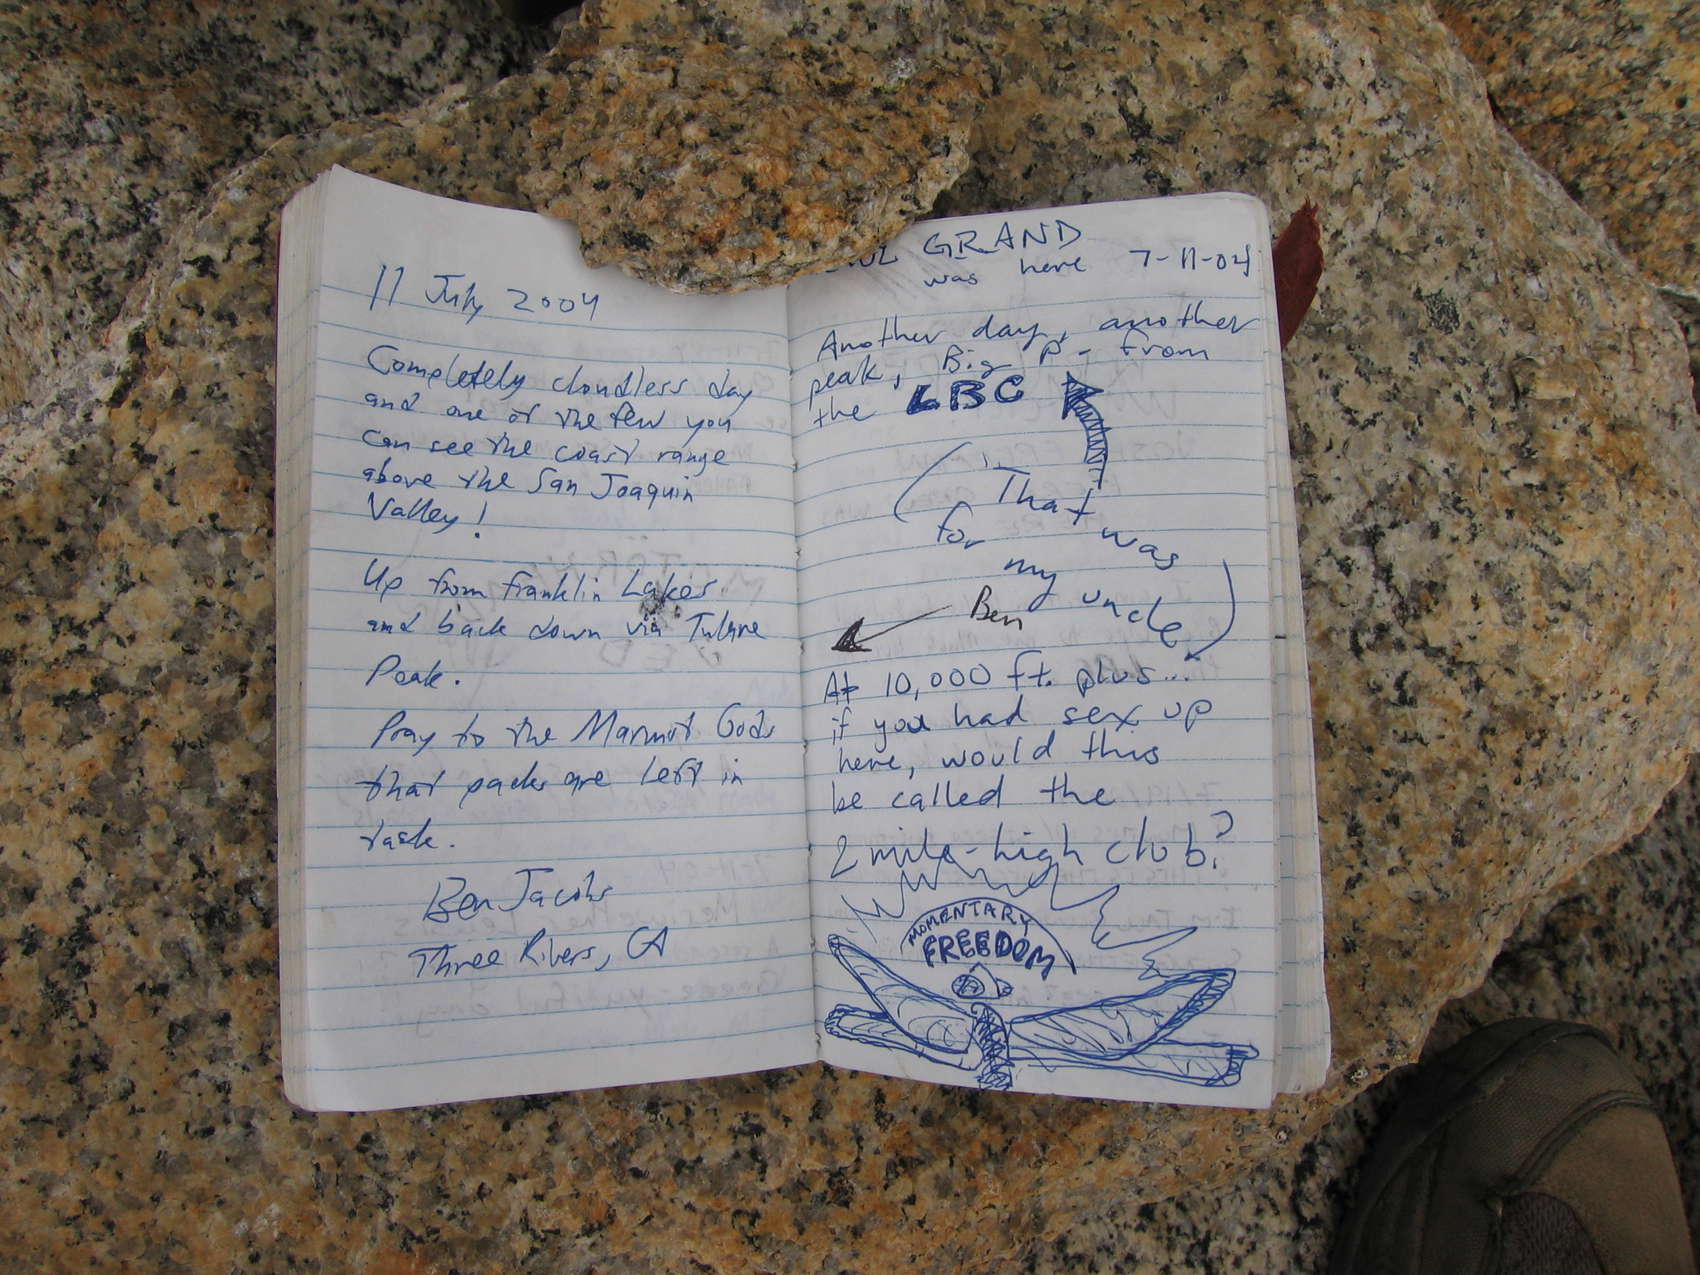 11 July 2004
Completely cloudless day
and one of the few you
can see the coast range
above the San Joaquin
Valley!
Up from Franklin Lakes
and back down via Tulare
Peak.
Pray to the Marmot Gods
that packs are left in
tack.
Ben Jacobs
Three Rivers, CA
GRAND
was here 7-11-04
Another day, another
peak, Big P - from
the LBC
That was
for my uncle
Ben
At 10,000 ft. plus...
if you had sex up
here, would this
be called the
2 mile-high club?
MOMENTARY
FREEDOM